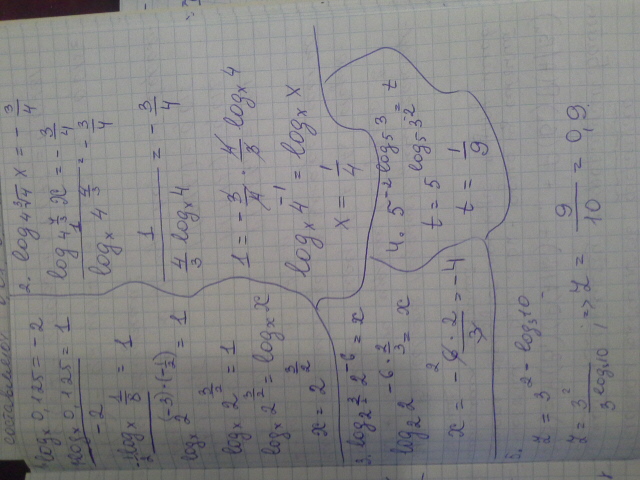 1. log_x 0,125 = -2
log_x 0,125 / -2 = 1
-1/2 log_x 1/8 = 1
log_x 2^((-3)·(-1/2)) = 1
log_x 2^(3/2) = 1
log_x 2^(3/2) = log_x x
x = 2^(3/2)
2. log_(4∛4) x = -3/4
log_(4^(4/3)) x = -3/4
1 / log_x 4^(4/3) = -3/4
1 / (4/3 log_x 4) = -3/4
1 = -3/4 · 4/3 log_x 4
log_x 4^(-1) = log_x x
x = 1/4
3. log_(2^(3/2)) 2^(-6) = x
log_2 2^(-6·2/3) = x
x = -6·2/3 = -4
4. 5^(-2 log_5 3) = t
t = 5^(log_5 3^(-2))
t = 1/9
5.
z = 3^(2 - log_3 10)
z = 3^2 / 3^(log_3 10) ; => z = 9/10 = 0,9